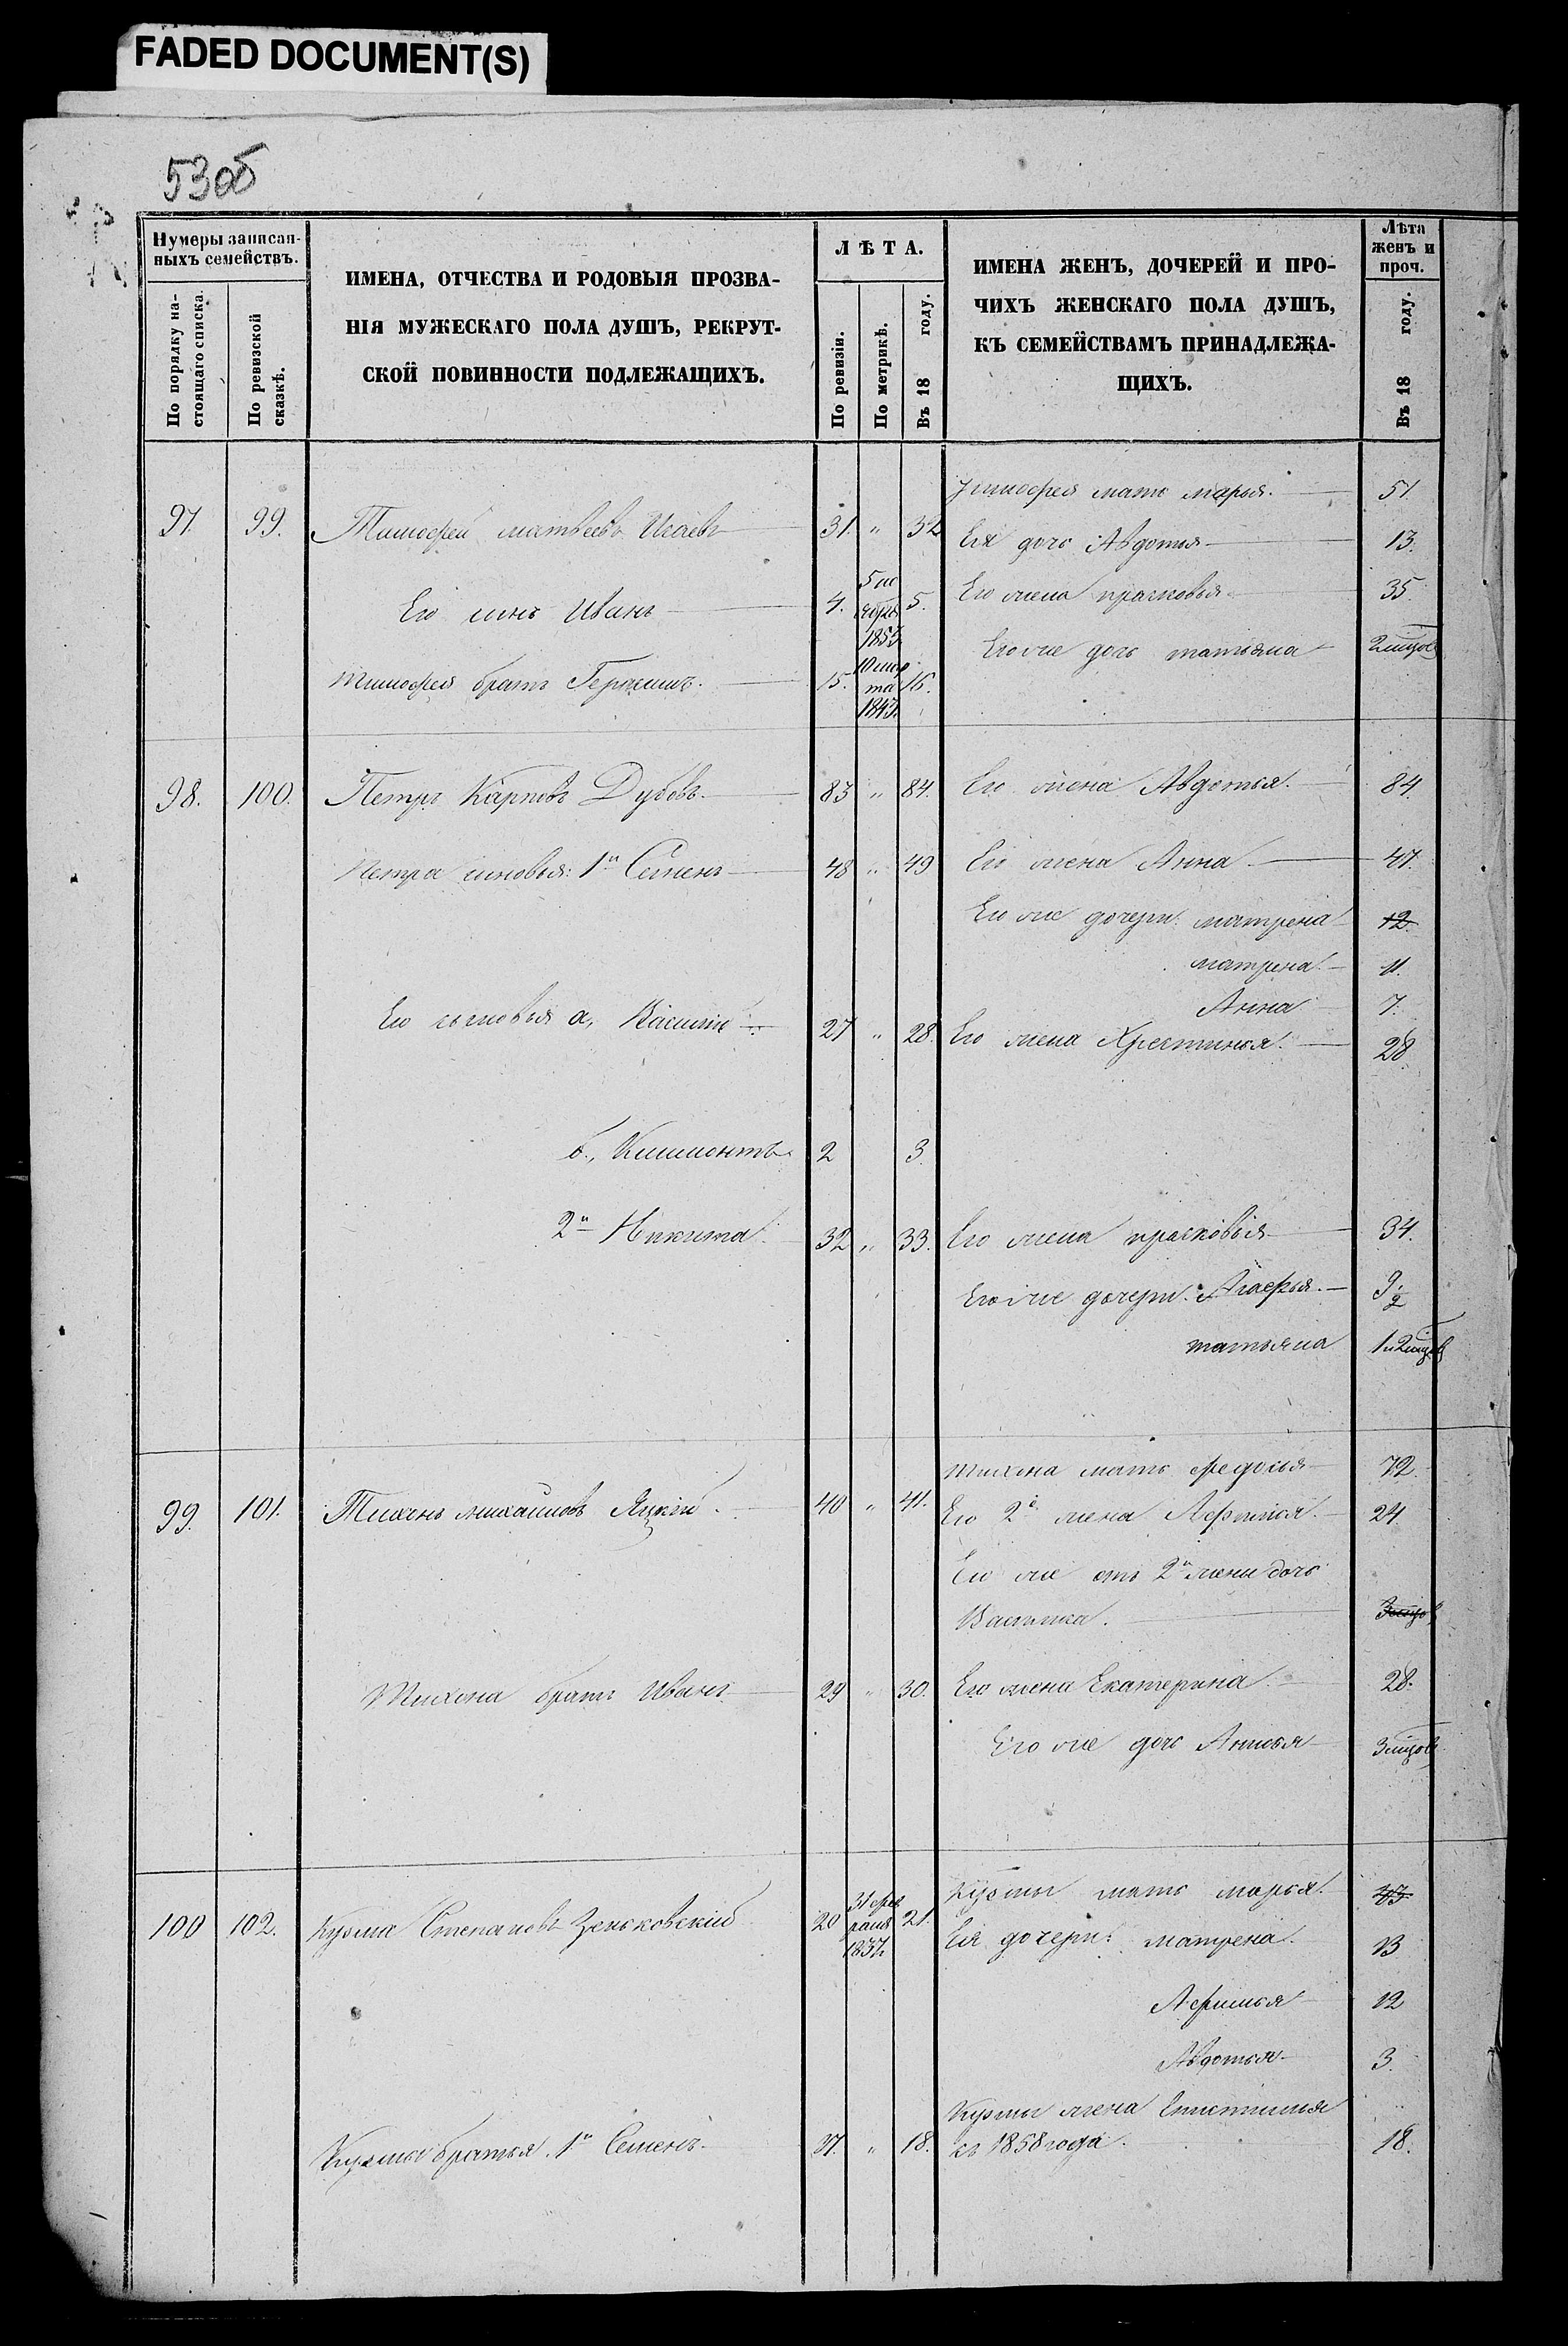 FADED DOCUMENT(S)
53об
Нумеры записан-
ныхъ семействъ.
По порядку на-
стоящаго списка.
По ревизской
сказкѣ.
ИМЕНА, ОТЧЕСТВА И РОДОВЫЯ ПРОЗВА-
НІЯ МУЖЕСКАГО ПОЛА ДУШЪ, РЕКРУТ-
СКОЙ ПОВИННОСТИ ПОДЛЕЖАЩИХЪ.
ЛѢТА.
По ревизіи.
По метрикѣ.
Въ 18 году.
ИМЕНА ЖЕНЪ, ДОЧЕРЕЙ И ПРО-
ЧИХЪ ЖЕНСКАГО ПОЛА ДУШЪ,
КЪ СЕМЕЙСТВАМЪ ПРИНАДЛЕЖА-
ЩИХЪ.
Лѣта
женъ и
проч.
Въ 18 году.
Тимофея мать марья. 51.
97. 99. Тимофей матвѣевъ 31. " 32 Ея дочь Авдотья 13.
Его сынъ Иванъ 4. 1853 5. Его жена прасковья 35.
Его же дочь татьяна 2 мцов
Тимофея братъ Герасимъ. 15. 10 мар
та 1843. 16.
98. 100. Петръ Карповъ Дубовъ 83 " 84. Его жена Авдотья. 84.
Петра сыновья: 1й Семенъ 48 " 49 Его жена Анна 47.
Его же дочери: матрена 12.
матрена 11.
Анна 7.
Его сыновья а, Василій 27 " 28. Его жена Хрестинья. 28.
б., Климонтъ 2 3.
2й Никита 32 " 33. Его жена прасковья 34.
Его же дочери: Агафья. 9 1/2
татьяна 1 и 2 мцов
Тихона мать Федосья 72.
99. 101. Тихонъ михайловъ Яцкій. 40 " 41. Его 2я жена Афимья. 24.
Его же отъ 2й жены дочь
Василиса. 3 мцов
Тихона братъ Иванъ 29 " 30. Его жена Екатерина. 28.
Его же дочь Анисья 3 мцов
Кузмы мать марья. 43
100 102. Кузма Степановъ Зеньковскій 20 1837. 21. Ея дочери: матрена. 13
Афимья 12
Авдотья 3.
Кузмы жена Епистимия
съ 1858 года. 18.
Кузмы братья. 1й Семенъ. 17. " 18.